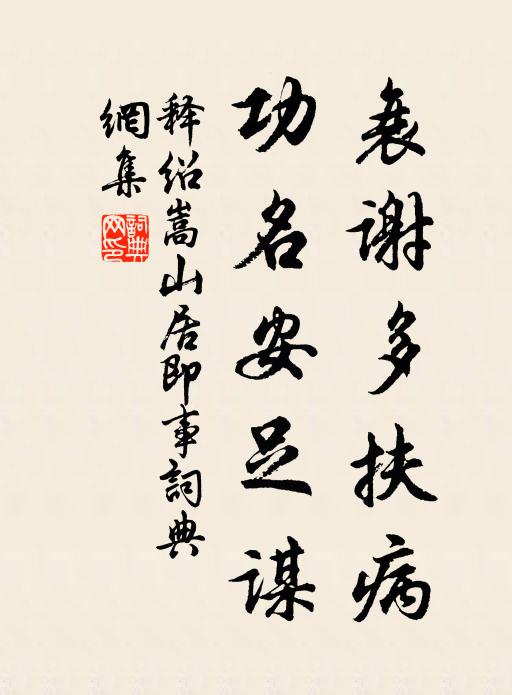 衰谢多扶病
功名安足谋
释绍嵩山居即事詞典
網集
詞典網印